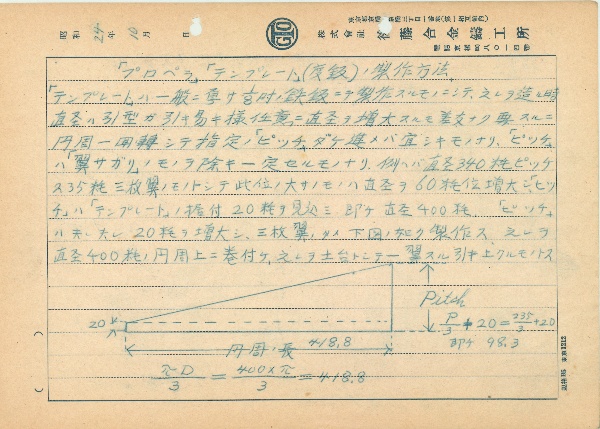 東京都京橋
昭和 24年 10月 日 GIO 株式會社 後藤合金鑄工所
「プロペラ」「テンプレート」(度鈑)ノ製作方法
「テンプレート」ハ一般ニ薄キ 鉄鈑ニテ製作スルモノニシテ、之レヲ造ル時
直径ハ引型ガ引キ易キ様任意ニ直径ヲ増大スルモ差支ナク要スルニ
円周一回轉シテ指定ノ「ピッチ」ダケ進メバ宜シキモノナリ、「ピッチ」
ハ「翼サガリ」ノモノヲ除キ一定セルモノナリ、例ヘバ直径340粍ピッチ
235粍 三枚翼ノモノトシテ此位ノ大サノモノハ直径ヲ60粍位増大シ「ピッ
チ」ハ「テンプレート」ノ据付 20粍ヲ見込ミ 即チ 直径400粍、「ピッチ」
20粍ヲ増大シ、三枚翼ノタメ下図ノ如ク製作ス 之レヲ
直径400粍ノ円周上ニ巻付ケ、之レヲ土台トシテ一翼スル引キ上クルモノトス
20
Pitch
P/3 + 20 = 235/3 + 20
即チ 98.3
円周ノ長 418.8
πD/3 = 400×π/3 = 418.8